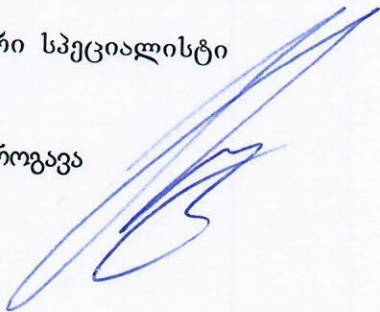 რი სპეციალისტი
როგავა